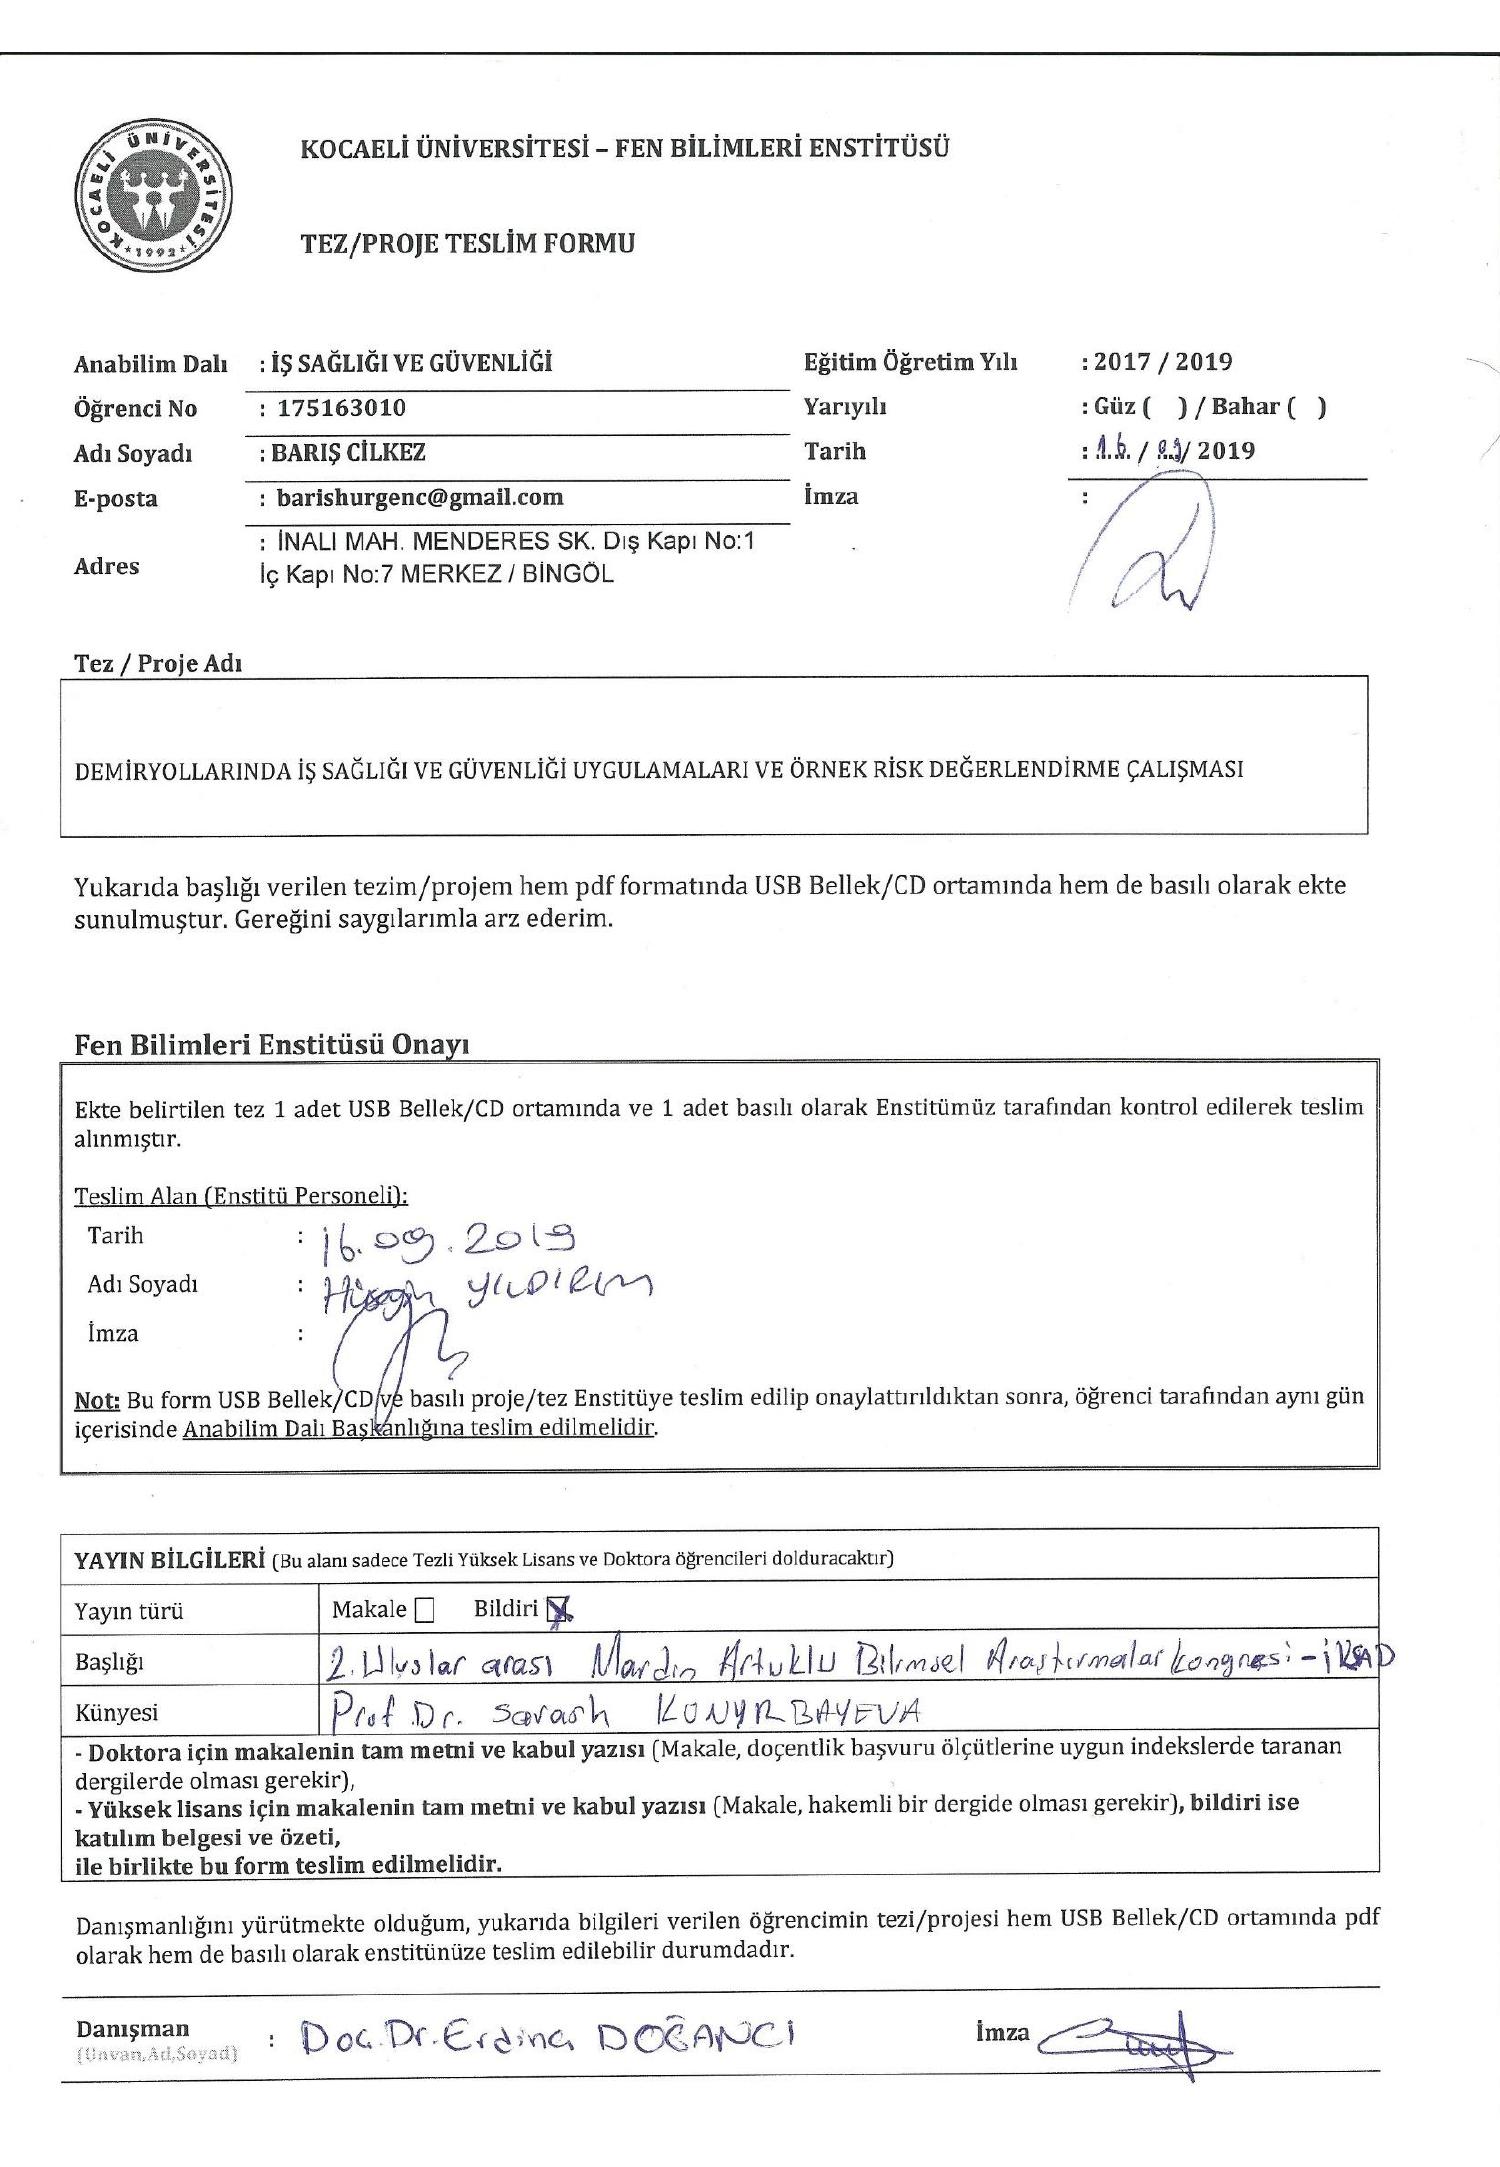 KOCAELİ ÜNİVERSİTESİ
*1992*
KOCAELİ ÜNİVERSİTESİ – FEN BİLİMLERİ ENSTİTÜSÜ
TEZ/PROJE TESLİM FORMU
Anabilim Dalı : İŞ SAĞLIĞI VE GÜVENLİĞİ Eğitim Öğretim Yılı : 2017 / 2019
Öğrenci No : 175163010 Yarıyılı : Güz ( ) / Bahar ( )
Adı Soyadı : BARIŞ CİLKEZ Tarih : 16 / 09 / 2019
E-posta : barishurgenc@gmail.com İmza :
: İNALI MAH. MENDERES SK. Dış Kapı No:1
Adres İç Kapı No:7 MERKEZ / BİNGÖL
Tez / Proje Adı
DEMİRYOLLARINDA İŞ SAĞLIĞI VE GÜVENLİĞİ UYGULAMALARI VE ÖRNEK RİSK DEĞERLENDİRME ÇALIŞMASI
Yukarıda başlığı verilen tezim/projem hem pdf formatında USB Bellek/CD ortamında hem de basılı olarak ekte
sunulmuştur. Gereğini saygılarımla arz ederim.
Fen Bilimleri Enstitüsü Onayı
Ekte belirtilen tez 1 adet USB Bellek/CD ortamında ve 1 adet basılı olarak Enstitümüz tarafından kontrol edilerek teslim
alınmıştır.
Teslim Alan (Enstitü Personeli):
Tarih : 16.09.2019
Adı Soyadı : YILDIRIM
İmza :
Not: Bu form USB Bellek/CD ve basılı proje/tez Enstitüye teslim edilip onaylattırıldıktan sonra, öğrenci tarafından aynı gün
içerisinde Anabilim Dalı Başkanlığına teslim edilmelidir.
YAYIN BİLGİLERİ (Bu alanı sadece Tezli Yüksek Lisans ve Doktora öğrencileri dolduracaktır)
Yayın türü Makale Bildiri
Başlığı 2. Uluslar arası Mardin Artuklu Bilimsel Araştırmalar kongresi - iKSAD
Künyesi Prof Dr. Sarash KONYRBAYEVA
- Doktora için makalenin tam metni ve kabul yazısı (Makale, doçentlik başvuru ölçütlerine uygun indekslerde taranan
dergilerde olması gerekir),
- Yüksek lisans için makalenin tam metni ve kabul yazısı (Makale, hakemli bir dergide olması gerekir), bildiri ise
katılım belgesi ve özeti,
ile birlikte bu form teslim edilmelidir.
Danışmanlığını yürütmekte olduğum, yukarıda bilgileri verilen öğrencimin tezi/projesi hem USB Bellek/CD ortamında pdf
olarak hem de basılı olarak enstitünüze teslim edilebilir durumdadır.
Danışman : Doç.Dr.Erdinç DOĞANCI İmza
(Ünvan,Ad,Soyad)